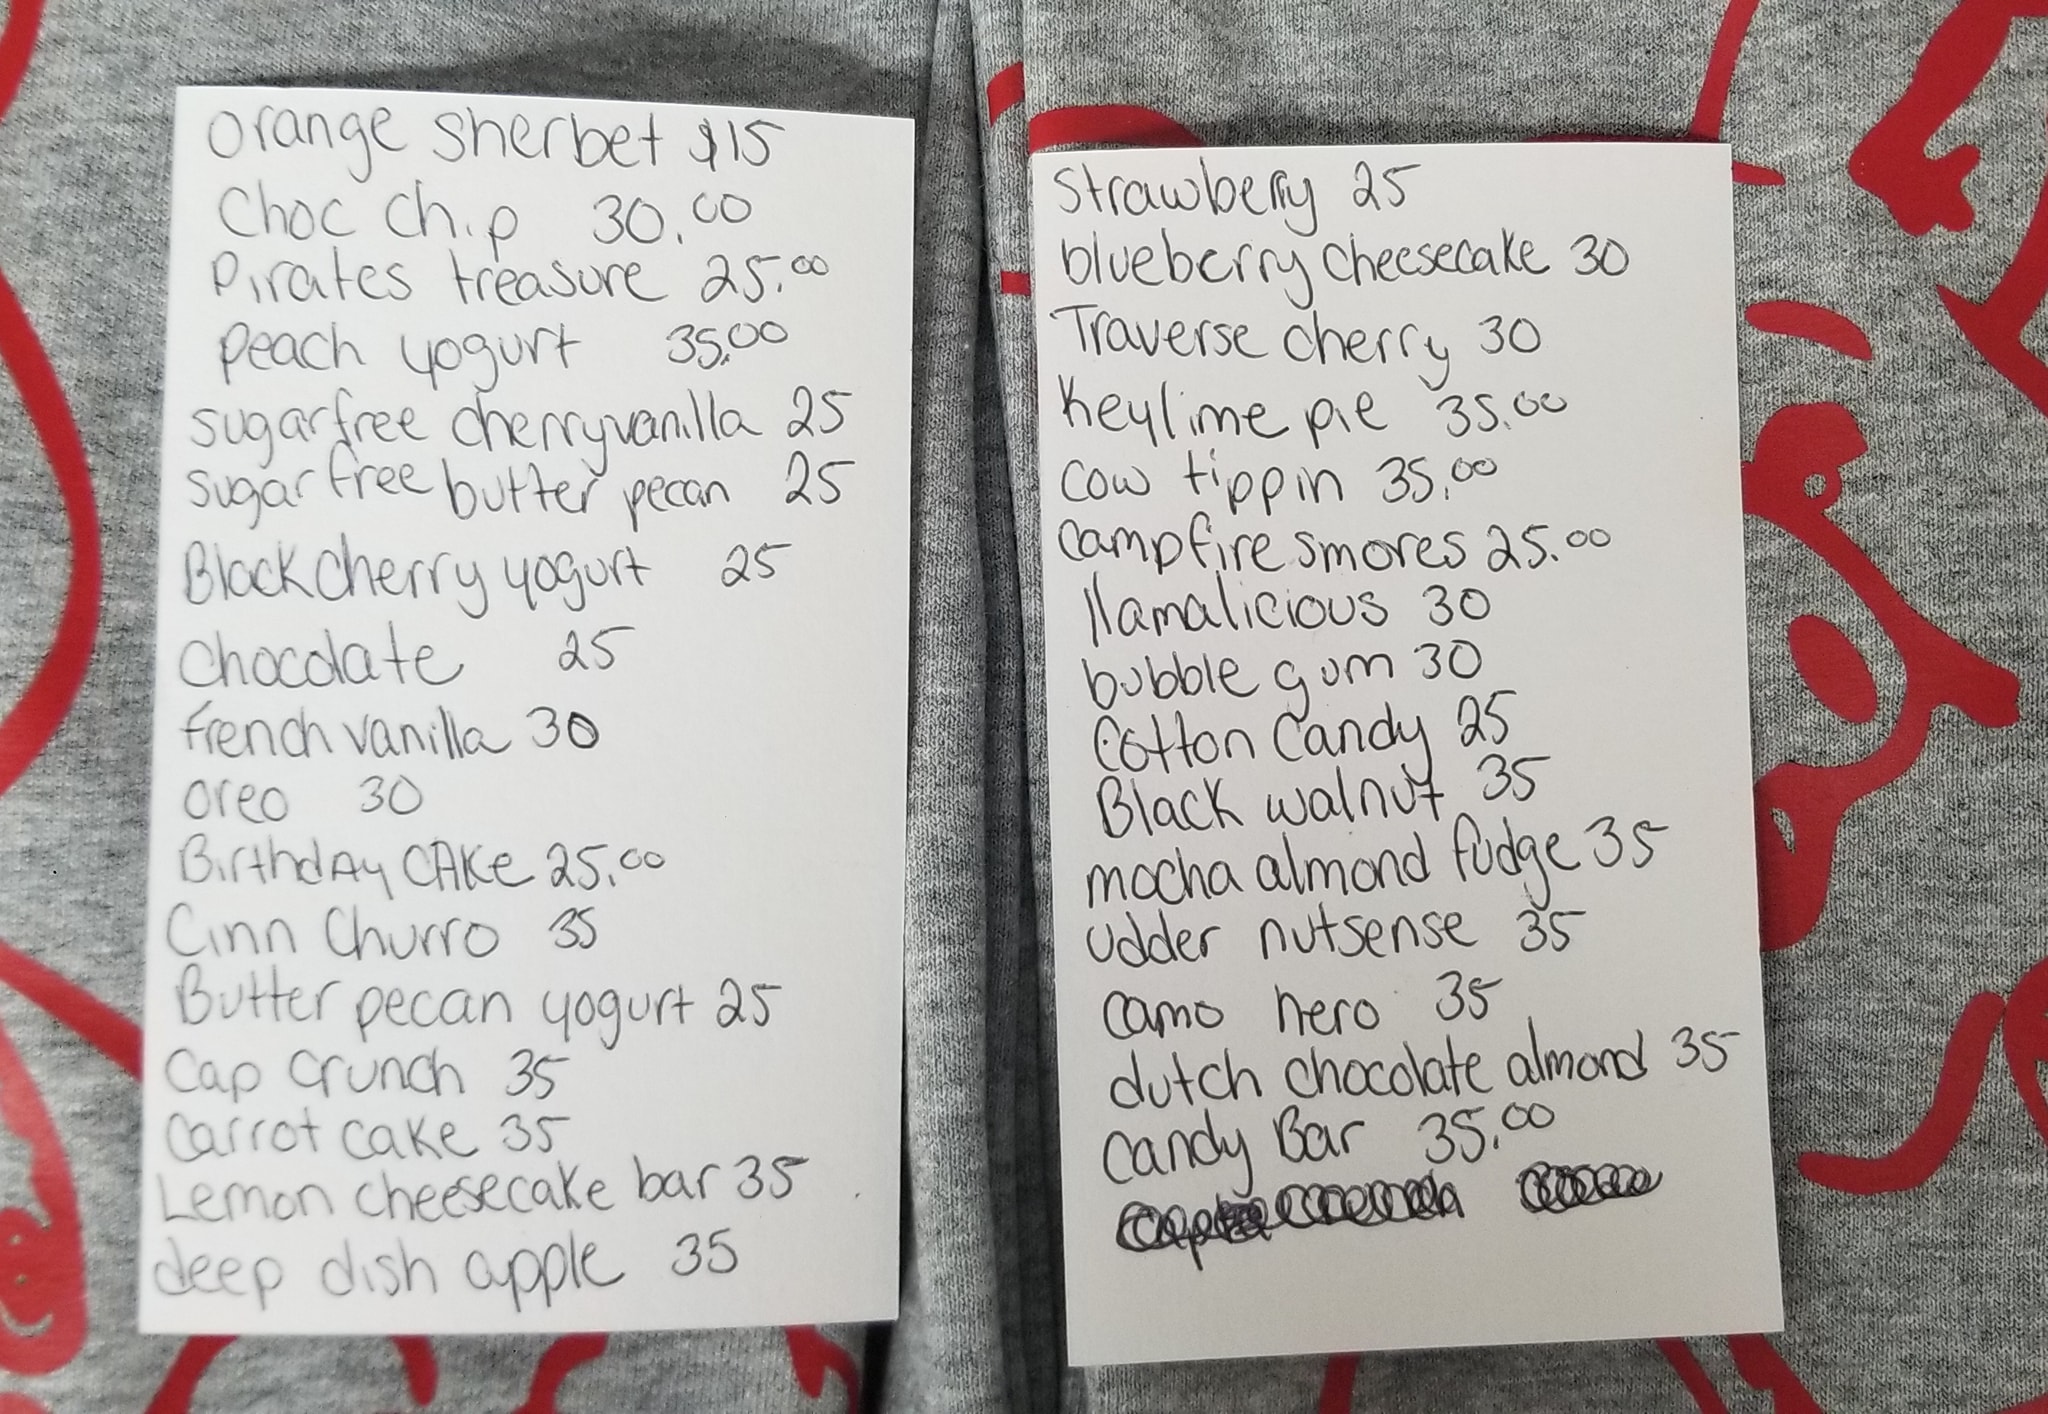 Orange Sherbet $15
Choc Chip 30.00
Pirates treasure 25.00
Peach yogurt 35.00
sugar free cherry vanilla 25
sugar free butter pecan 25
Black cherry yogurt 25
Chocolate 25
french vanilla 30
oreo 30
BirthdAy CAKe 25.00
Cinn Churro 35
Butter pecan yogurt 25
Cap Crunch 35
Carrot cake 35
Lemon cheesecake bar 35
deep dish apple 35
Strawberry 25
blueberry cheesecake 30
Traverse cherry 30
Keylime pie 35.00
cow tippin 35.00
campfire smores 25.00
llamalicious 30
bubble gum 30
Cotton Candy 25
Black walnut 35
mocha almond fudge 35
udder nutsense 35
camo hero 35
dutch chocolate almond 35
Candy Bar 35.00